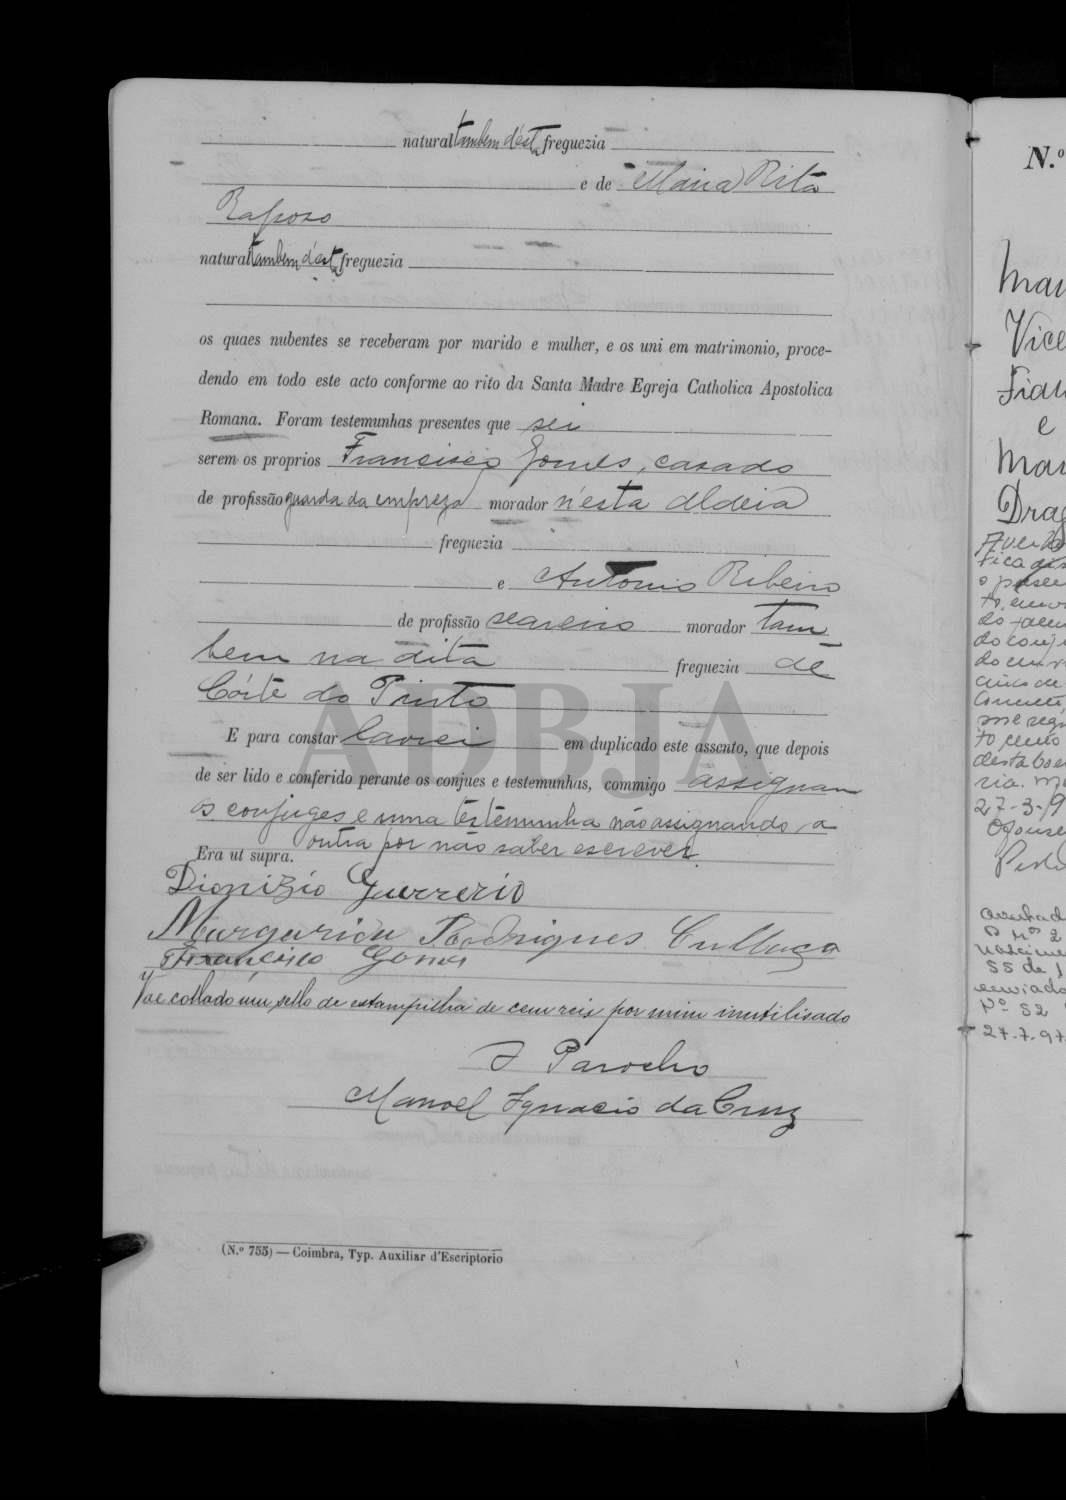 natural tambem d'esta freguezia
e de Maria Rita
Raposo
natural tambem d'esta freguezia
os quaes nubentes se receberam por marido e mulher, e os uni em matrimonio, proce-
dendo em todo este acto conforme ao rito da Santa Madre Egreja Catholica Apostolica
Romana. Foram testemunhas presentes que sei
serem os proprios Francisco Gomes, casado
de profissão guarda da empreza morador n'esta aldeia
freguezia
e Antonio Ribeiro
de profissão seareiro morador tam
bem na dita freguezia de
Côrte do Pinto
E para constar lavrei em duplicado este assento, que depois
de ser lido e conferido perante os conjues e testemunhas, commigo assignam
os conjuges e uma testemunha não assignando a
outra por não saber escrever.
Era ut supra.
Dionizio Guerrerio
Margarida Rodrigues Cullaça
Francisco Gomes
Vae collado um sello de estampilha de cem reis por mim inutilisado
O Parocho
Manoel Ignacio da Cruz
(N.º 755) — Coimbra, Typ. Auxiliar d'Escriptorio
ADBJA
N.º
Vice
e
27-3-9
Nº 52
27-7-97